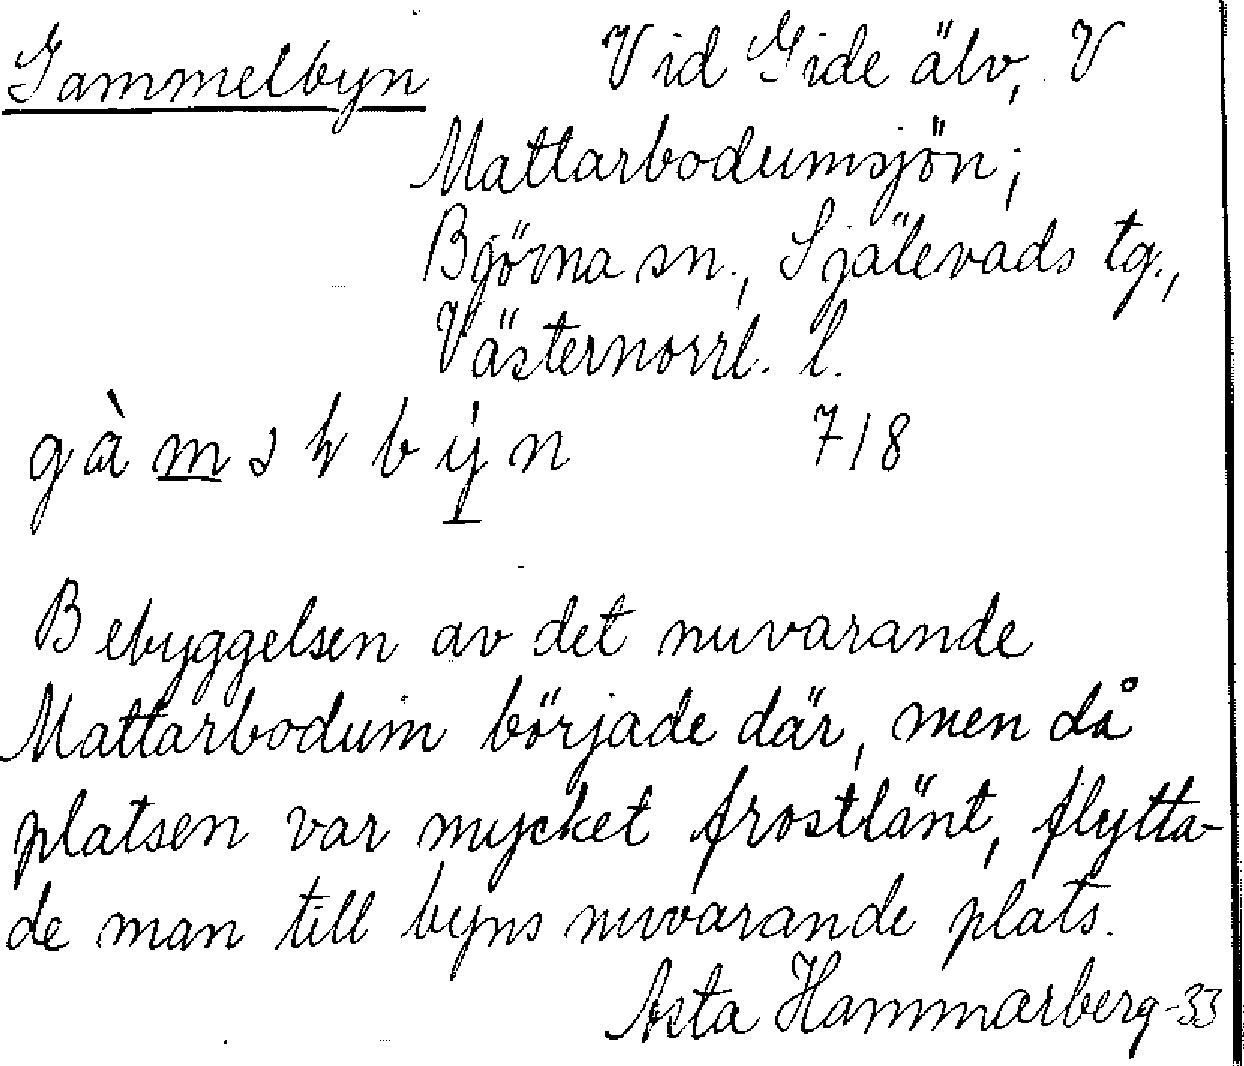 Gammelbyn Vid Gide älv, V
Mattarbodumsjön;
Björna sn., Själevads tg.,
Västernorrl. l.
718
Bebyggelsen av det nuvarande
Mattarbodum började där, men då
platsen var mycket frostlänt, flytta-
de man till byns nuvarande plats.
Asta Hammarberg -33